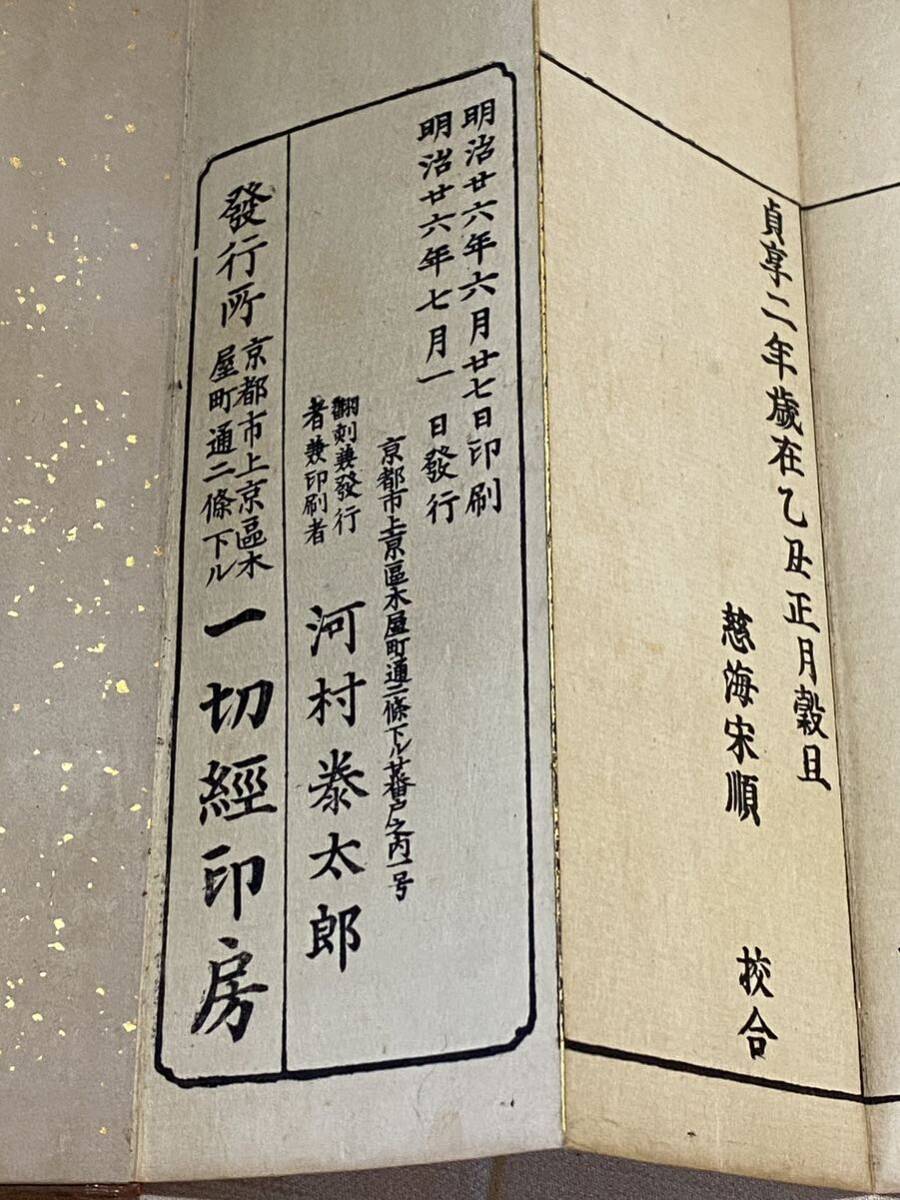 貞享二年歳在乙丑正月穀旦
慈海宋順　校合
明治廿六年六月廿七日印刷
明治廿六年七月一日發行
京都市上京區木屋町通二條下ル廿番戸之内一号
翻刻兼發行
者兼印刷者
河村泰太郎
發行所
京都市上京區木
屋町通二條下ル
一切經印房